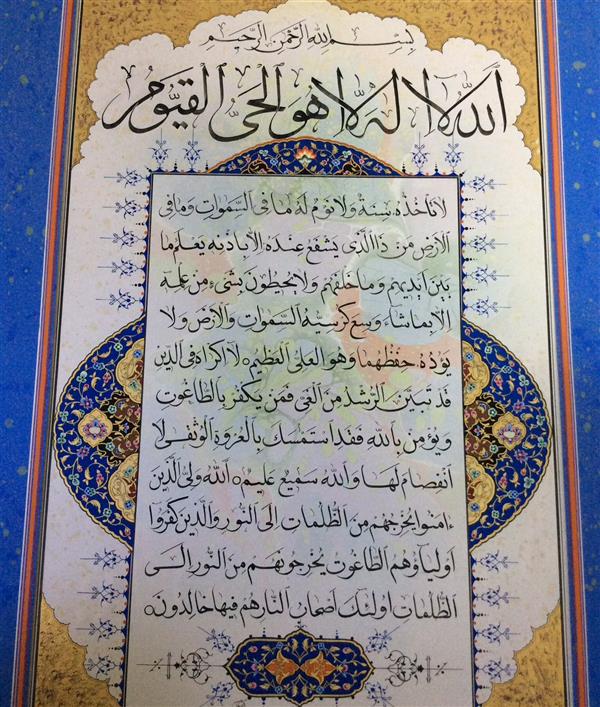 بِسْمِ اللهِ الرَّحْمنِ الرَّحيمِ
اَللهُ لا اِلهَ اِلّا هُوَ الْحَيُّ الْقَيُّومُ
لا تَأْخُذُهُ سِنَةٌ وَلا نَوْمٌ لَهُ ما فِي السَّمواتِ وَما فِي
الْاَرْضِ مَنْ ذَا الَّذي يَشْفَعُ عِنْدَهُ اِلّا بِاِذْنِه يَعْلَمُ ما
بَيْنَ اَيْديهِمْ وَما خَلْفَهُمْ وَلا يُحيطُونَ بِشَيْءٍ مِنْ عِلْمِه
اِلّا بِما شاءَ وَسِعَ كُرْسِيُّهُ السَّمواتِ وَالْاَرْضَ وَلا
يَؤُدُهُ حِفْظُهُما وَهُوَ الْعَلِيُّ الْعَظيمُ لا اِكْراهَ فِي الدّينِ
قَدْ تَبَيَّنَ الرُّشْدُ مِنَ الْغَيِّ فَمَنْ يَكْفُرْ بِالطّاغُوتِ
وَيُؤْمِنْ بِاللهِ فَقَدِ اسْتَمْسَكَ بِالْعُرْوَةِ الْوُثْقى لَا
انْفِصامَ لَها وَاللهُ سَميعٌ عَليمٌ اَللهُ وَلِيُّ الَّذينَ
ءامَنُوا يُخْرِجُهُمْ مِنَ الظُّلُماتِ اِلَى النُّورِ وَالَّذينَ كَفَرُوا
اَوْلِياؤُهُمُ الطّاغُوتُ يُخْرِجُونَهُمْ مِنَ النُّورِ اِلَى
الظُّلُماتِ اُولئِكَ اَصْحابُ النّارِ هُمْ فيها خالِدُونَ